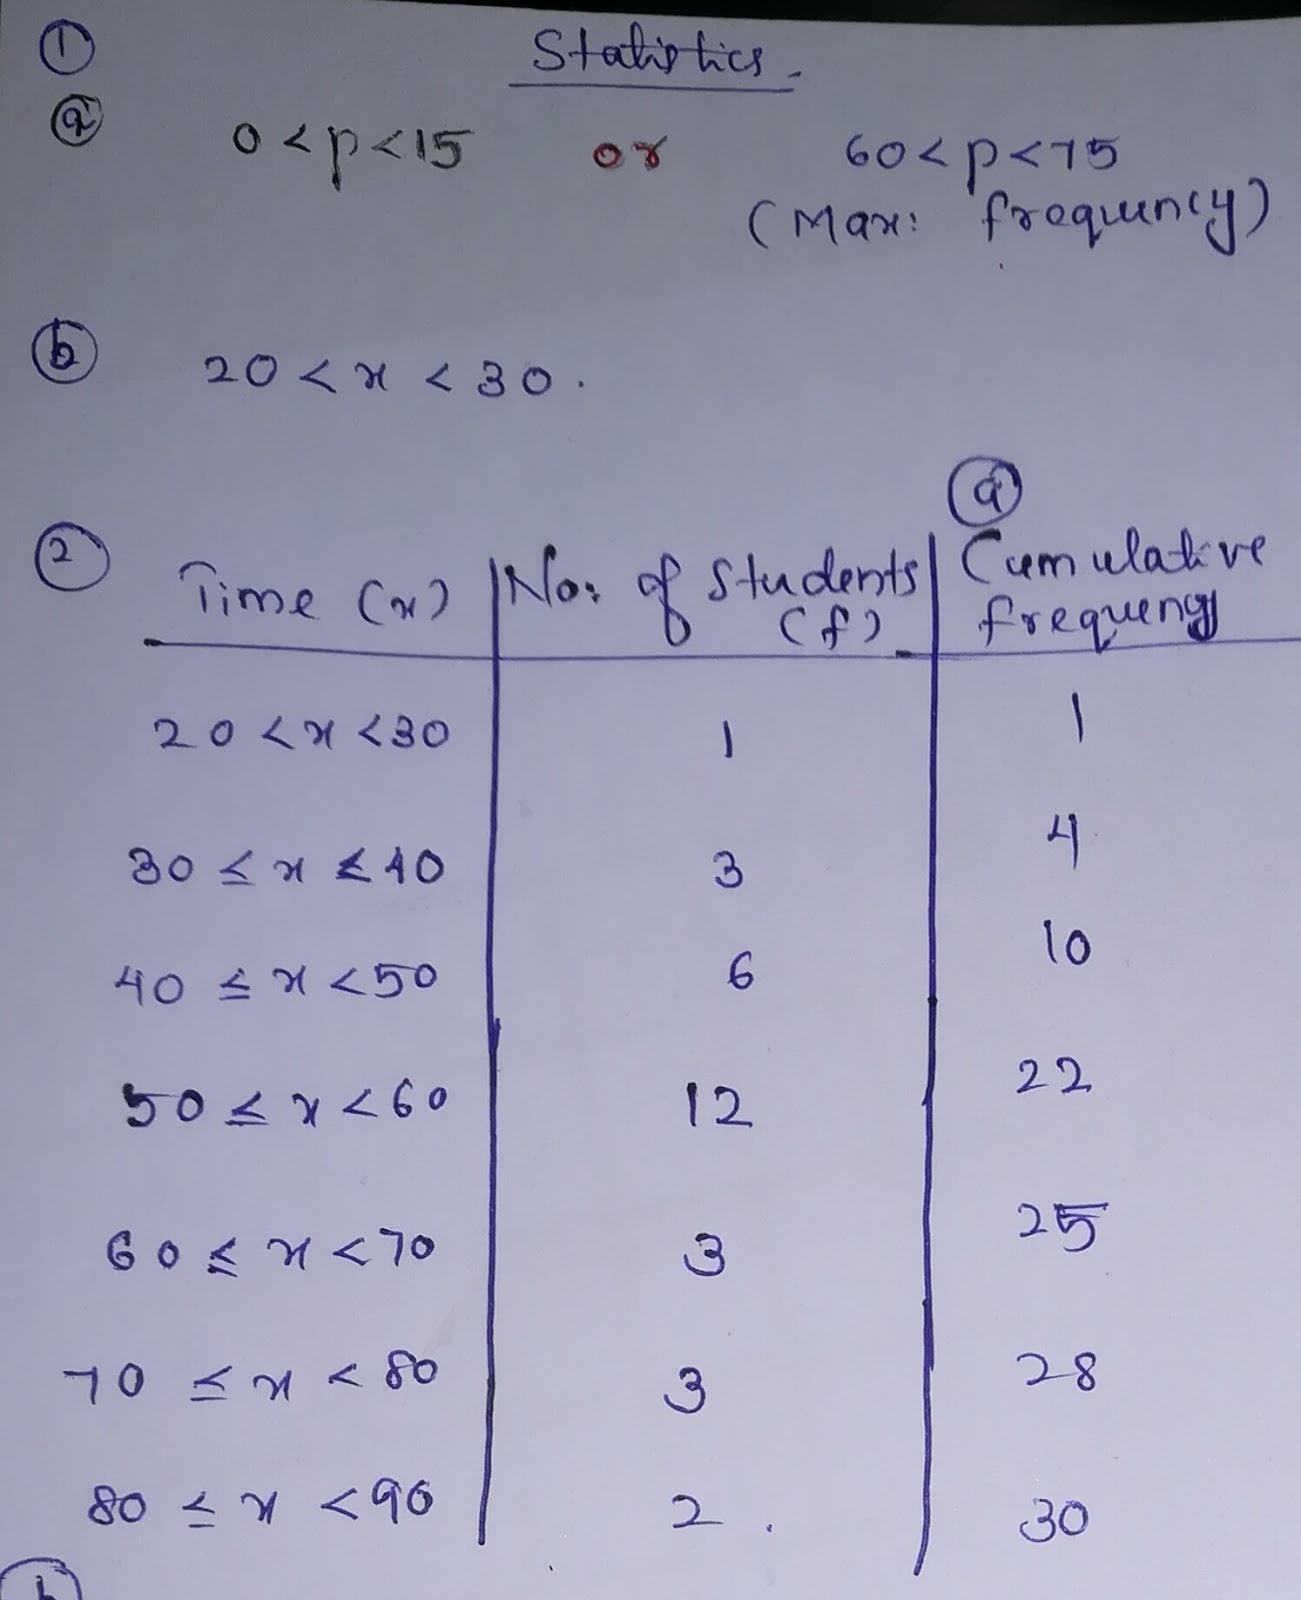 ①
Statistics
ⓐ 0 < p < 15 or 60 < p < 75
(Max: frequency)
ⓑ 20 < x < 30.
ⓐ
② Time (x) No: of Students (f) Cumulative frequency
20 < x < 30 1 1
30 ≤ x < 40 3 4
40 ≤ x < 50 6 10
50 ≤ x < 60 12 22
60 ≤ x < 70 3 25
70 ≤ x < 80 3 28
80 ≤ x < 90 2. 30